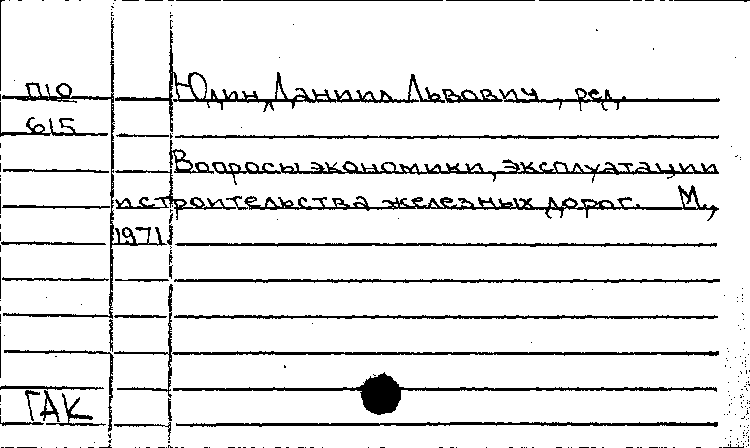 П10 Юдин, Даниил Львович, ред.
615
Вопросы экономики, эксплуатации
и строительства железных дорог. М.,
1971.
ГАК